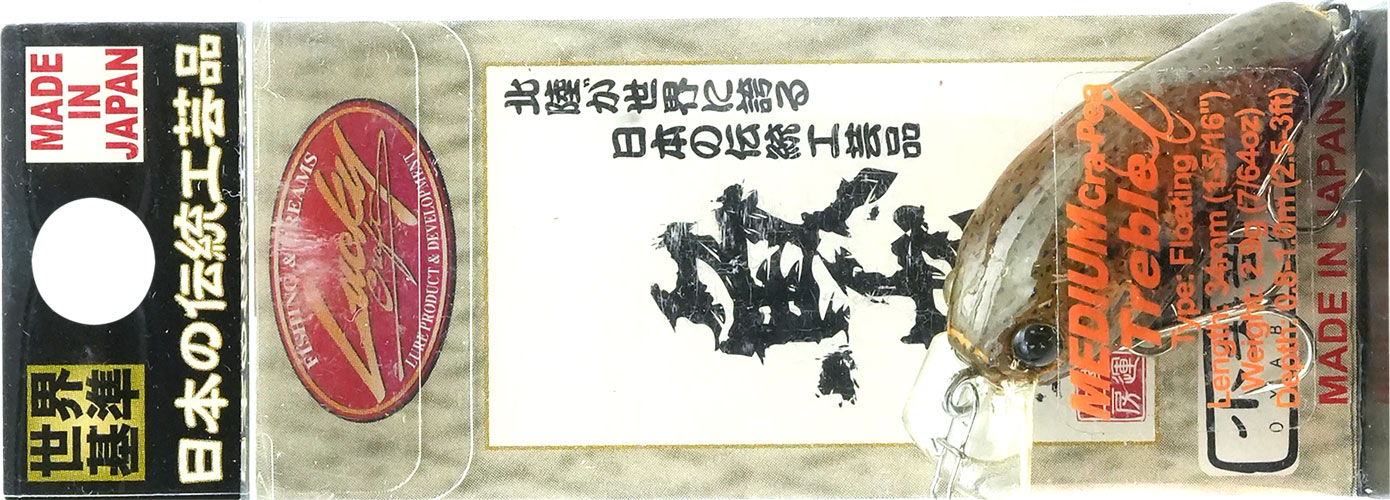 MADE
IN
JAPAN
日本の伝統工芸品
世界
基準
FISHING & DREAMS
Lucky
Craft
LURE PRODUCT & DEVELOPMENT
北陸が世界に誇る
日本の伝統工芸品
MEDIUM Cra-Pea
Treble
Type: Floating
Length: 34mm (1-5/16")
Weight: 2.9g (7/64oz)
Depth: 0.8-1.0m (2.5-3ft)
MADE IN JAPAN